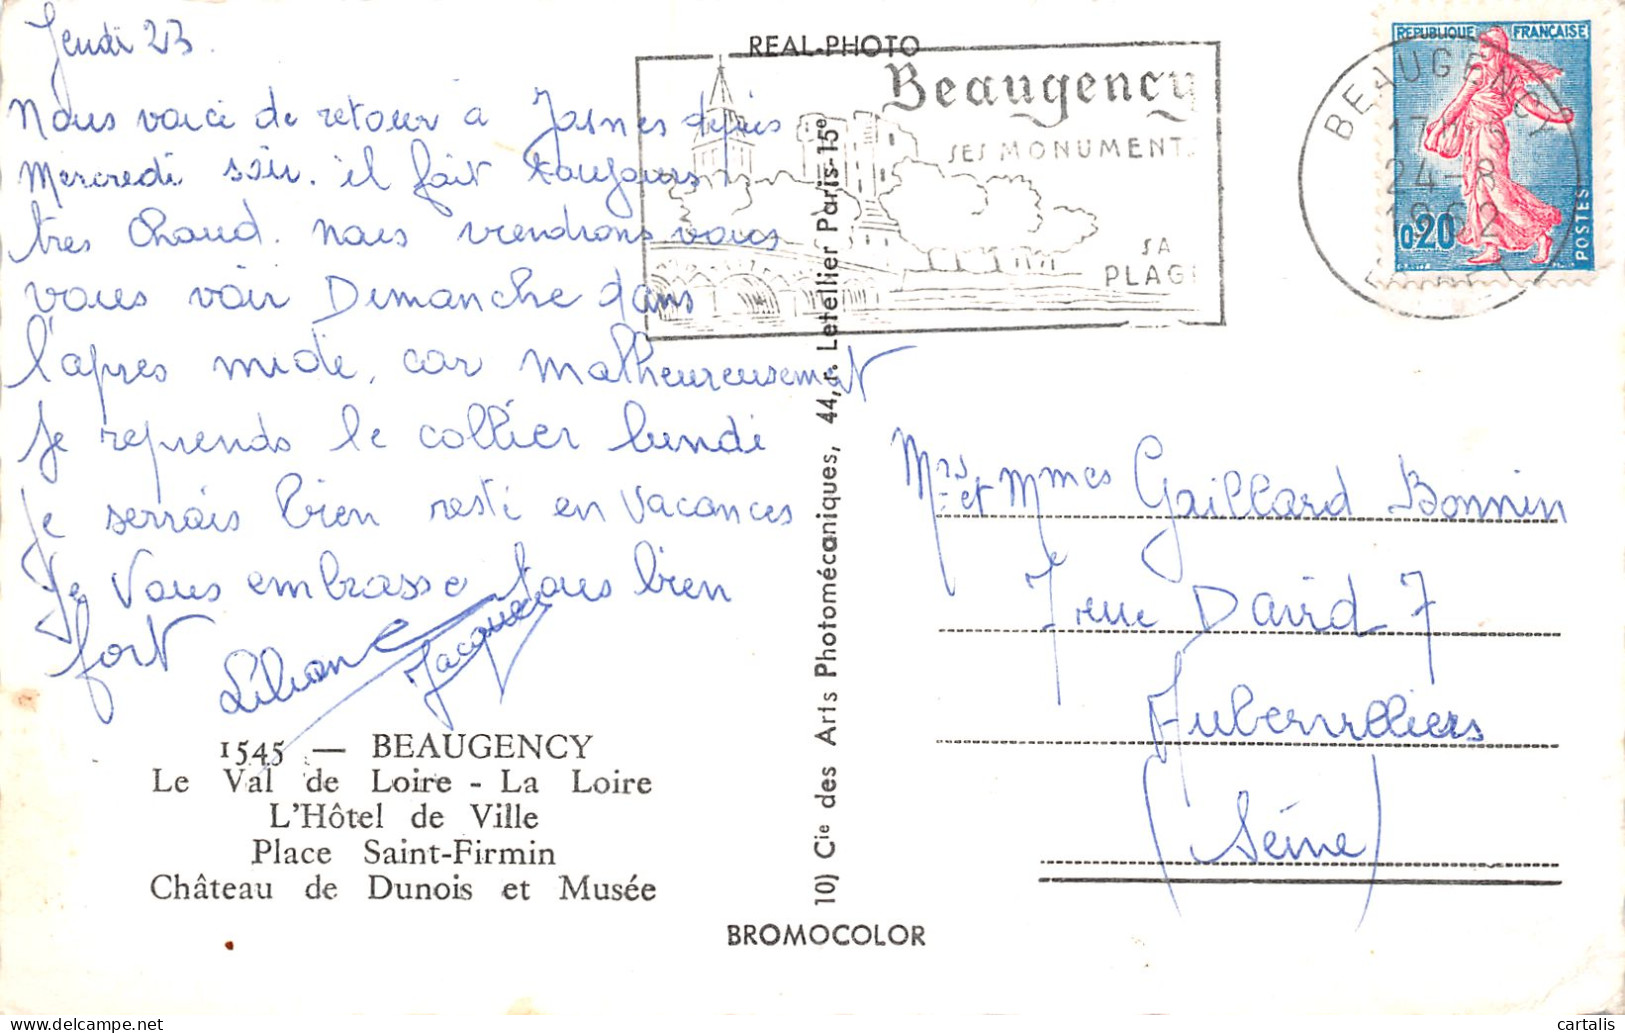 Jeudi 23.
Nous voici de retour à Josnes depuis
Mercredi soir. il fait toujours
très Chaud. nous viendrons vous
vous voir Dimanche dans
l'après midi, car malheureusement
je reprends le collier lundi
je serrais bien resté en vacances
Je Vous embrasse tous bien
fort
Liliane Jacques
1545 — BEAUGENCY
Le Val de Loire - La Loire
L'Hôtel de Ville
Place Saint-Firmin
Château de Dunois et Musée
REAL-PHOTO
10) Cie des Arts Photomécaniques, 44, r. Letellier Paris-15e
BROMOCOLOR
Beaugency
SES MONUMENTS
SA
PLAGE
REPUBLIQUE FRANÇAISE
0,20
POSTES
BEAUGENCY
24-8
1962
Mrs et Mmes Gaillard Bonnin
7 rue David 7
Aubervilliers
(Séine)
cartalis